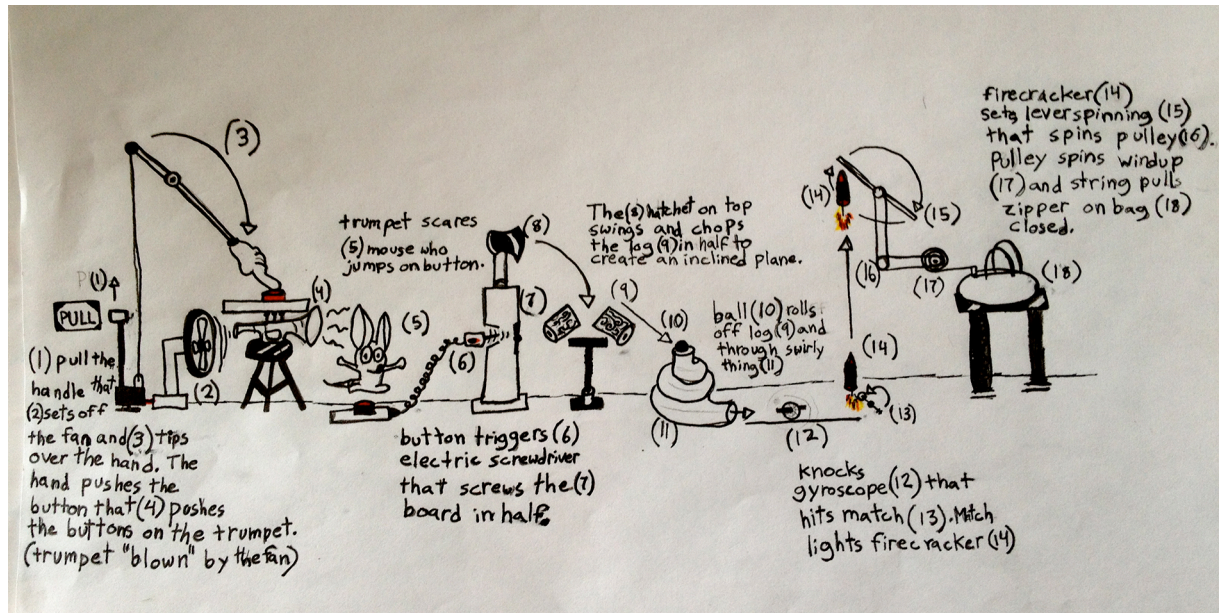 (1)
PULL
(1) pull the
handle that
(2) sets off
the fan and (3) tips
over the hand. The
hand pushes the
button that (4) pushes
the buttons on the trumpet.
(trumpet "blown" by the fan)
(2)
(3)
(4)
trumpet scares
(5) mouse who
jumps on button.
(5)
(6)
(7)
(8)
button triggers (6)
electric screwdriver
that screws the (7)
board in half.
The (8) hatchet on top
swings and chops
the log (9) in half to
create an inclined plane.
(9)
(10)
ball (10) rolls
off log (9) and
through swirly
thing (11)
(11)
(12)
(13)
(14)
knocks
gyroscope (12) that
hits match (13). Match
lights firecracker (14)
(14)
(15)
(16)
(17)
(18)
firecracker (14)
sets lever spinning (15)
that spins pulley (16).
Pulley spins windup
(17) and string pulls
zipper on bag (18)
closed.